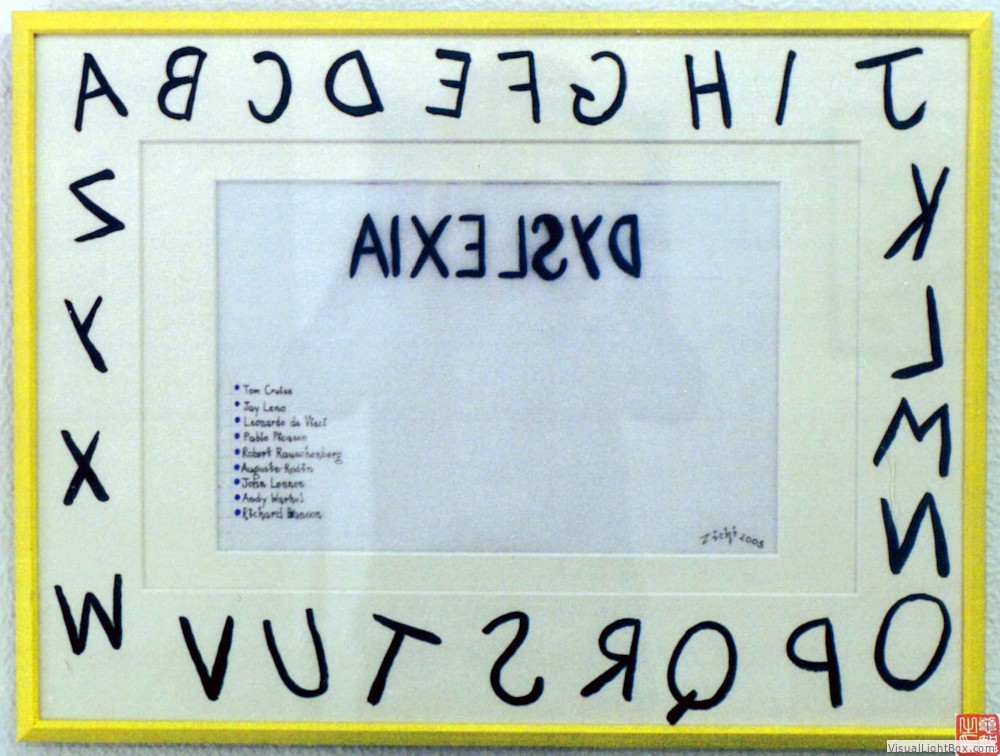 A B C D E F G H I J
K
L
M
N
O
P Q R S T U V
W
X
Y
Z
DYSLEXIA
• Tom Cruise
• Jay Leno
• Leonardo de Vinci
• Pablo Picasso
• Robert Rauschenberg
• Auguste Rodin
• John Lennon
• Andy Warhol
• Richard Branson
Zichi
VisualLightBox.com